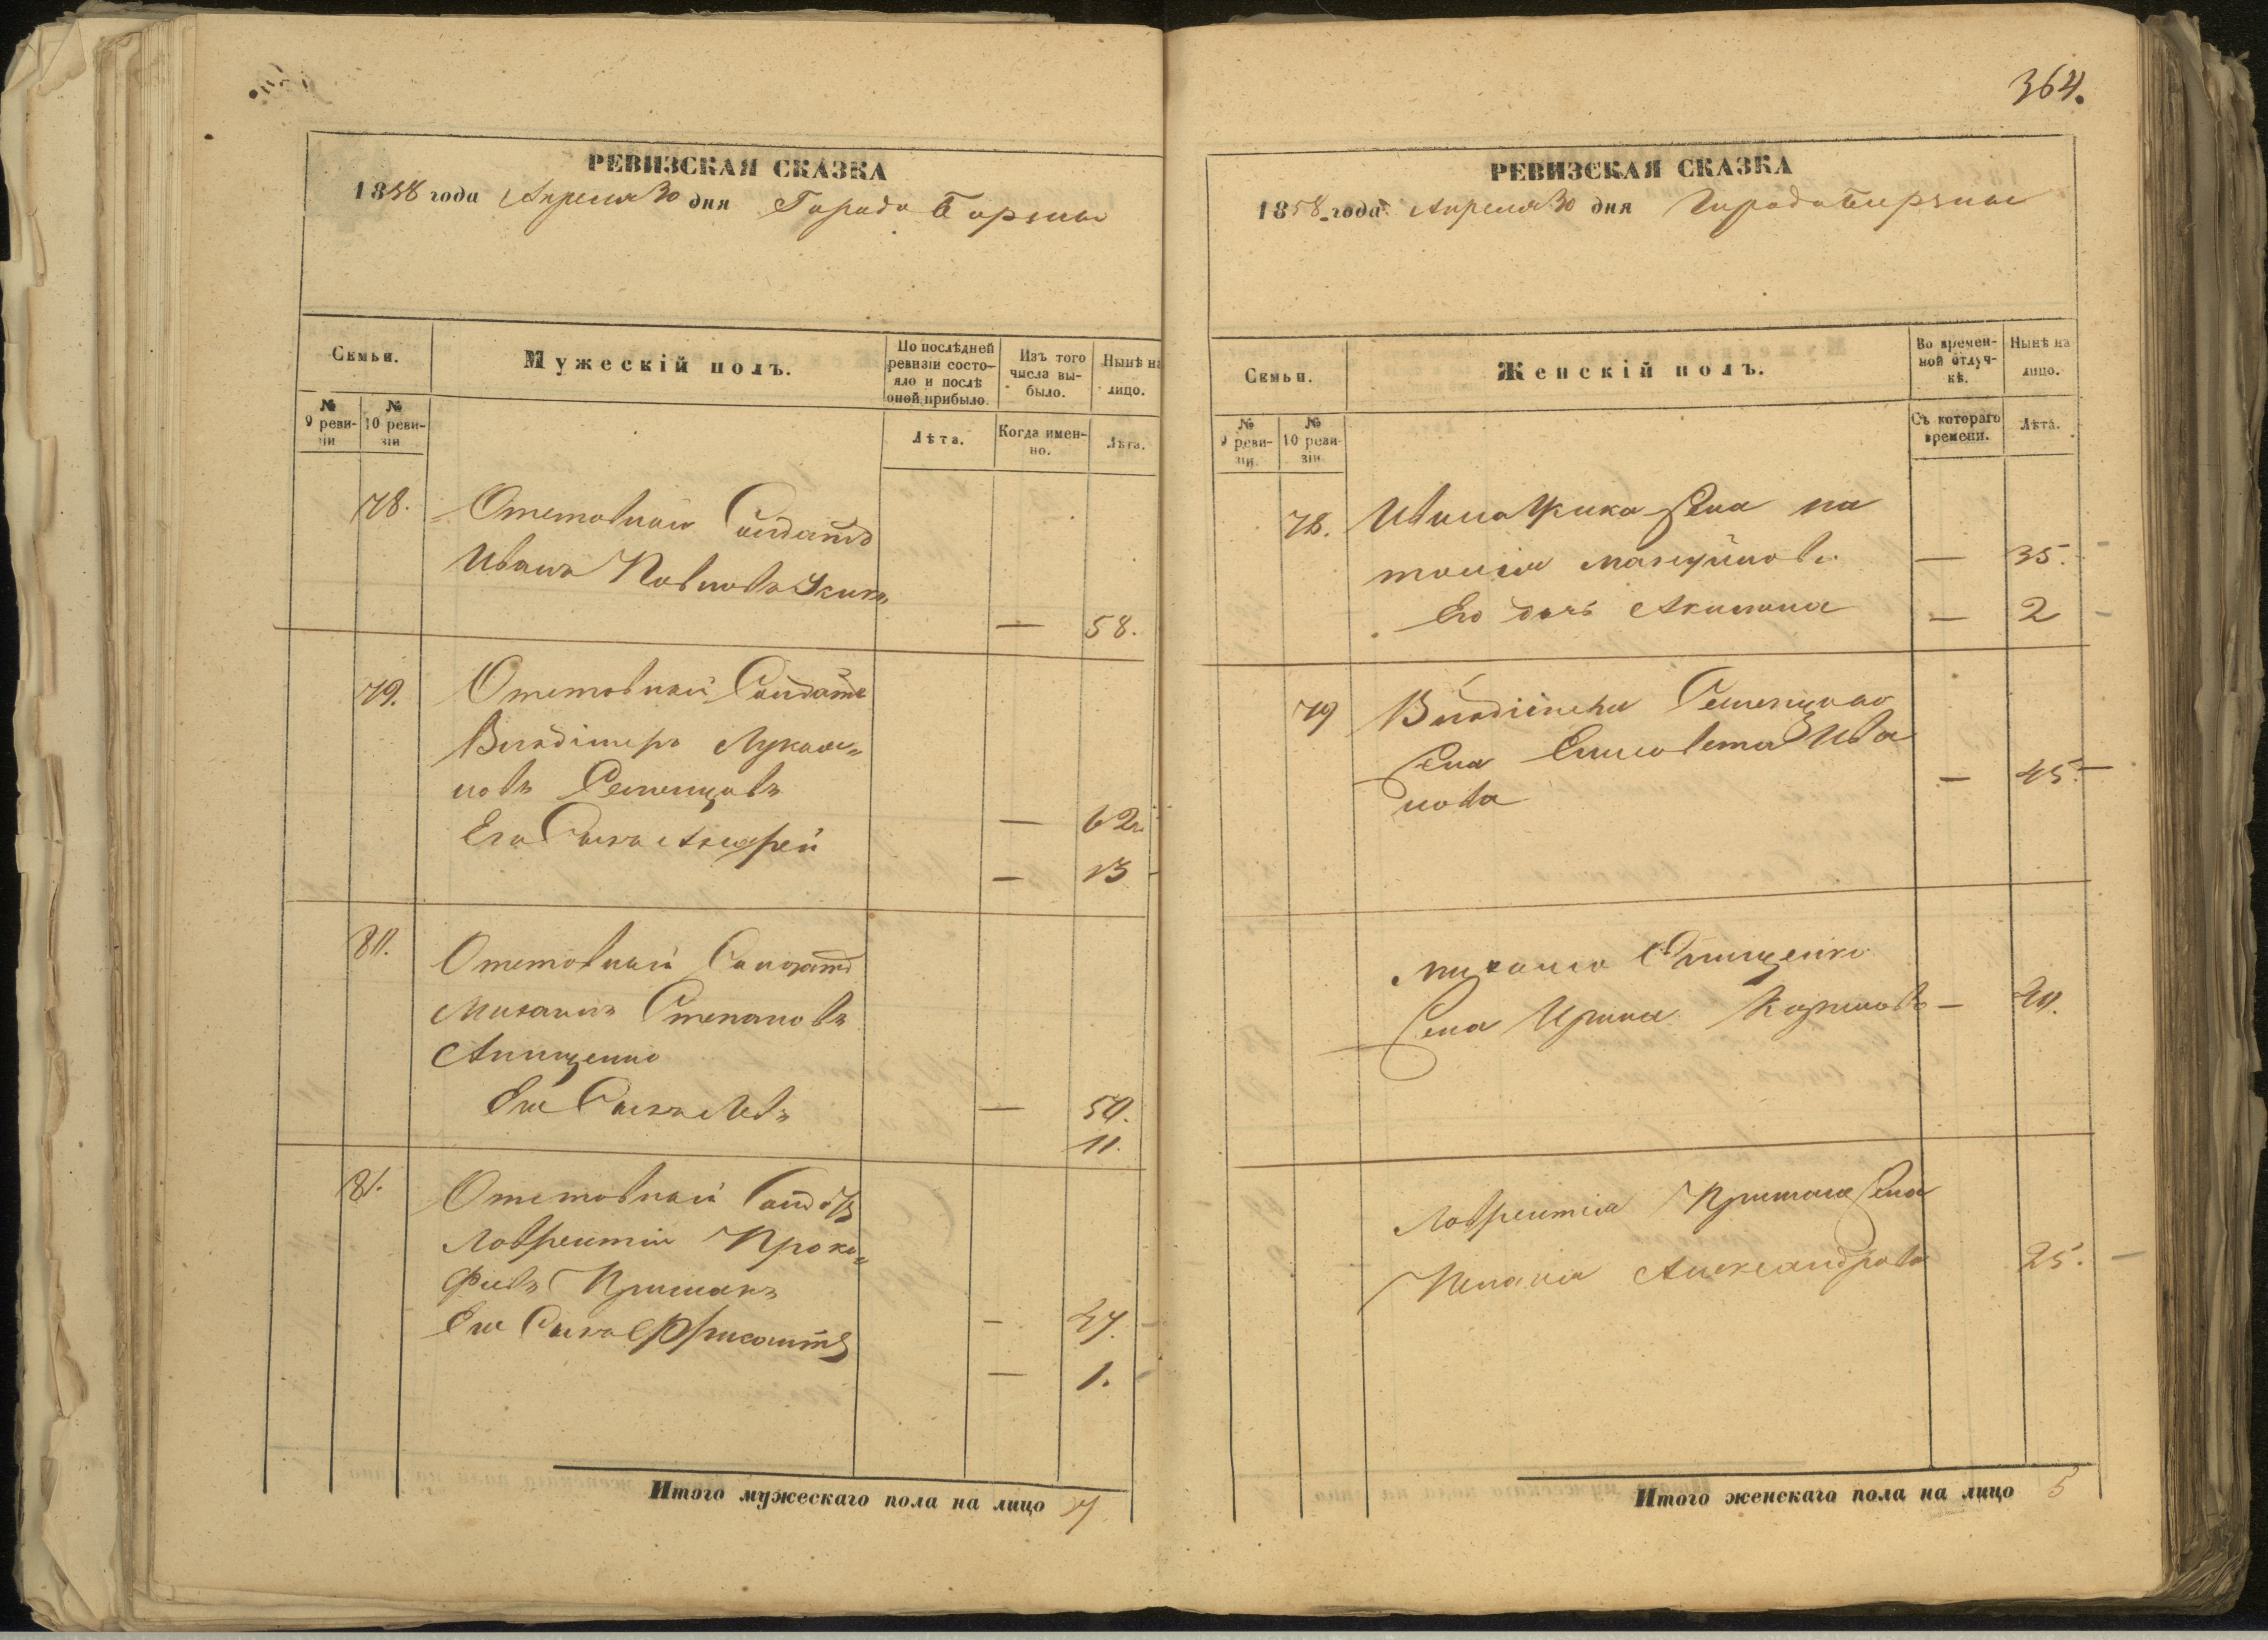 364.
РЕВИЗСКАЯ СКАЗКА
1858 года Апреля 30 дня Города Борзны
Семьи.
Мужескій полъ.
По послѣдней ревизіи состояло и послѣ оной прибыло.
Изъ того числа выбыло.
Нынѣ на лицо.
№ 9 ревизіи
№ 10 ревизіи
Лѣта.
Когда именно.
Лѣта.
78. Отставной Солдатъ
Иванъ Павловъ
— 58.
79. Отставной Солдатъ
Владіміръ Лукья=
новъ Семенцовъ
— 62
Его Сынъ Андрей
— 13
80. Отставный Солдатъ
Михаилъ Степановъ
Анищенко
— 50.
Его Сынъ Левъ
11.
81. Отставный Солдатъ
Лаврентій Проко=
фіевъ Примакъ
— 47.
Его Сынъ
— 1.
Итого мужескаго пола на лицо 7
РЕВИЗСКАЯ СКАЗКА
1858 года Апреля 30 дня Города Борзны
Семьи.
Женскій полъ.
Во временной отлучкѣ.
Нынѣ на лицо.
№ 9 ревизіи
№ 10 ревизіи
Съ котораго времени.
Лѣта.
78. Ивана жена На
талия
— 35.
Его дочь Акилина
— 2
79 Владіміра Семенцова
жена Елисовета Ива
нова
— 45.
Михаила Анищенка
жена Ирина Карпова — 40.
Лаврентія Примака жена
Александрова 25.
Итого женскаго пола на лицо 5